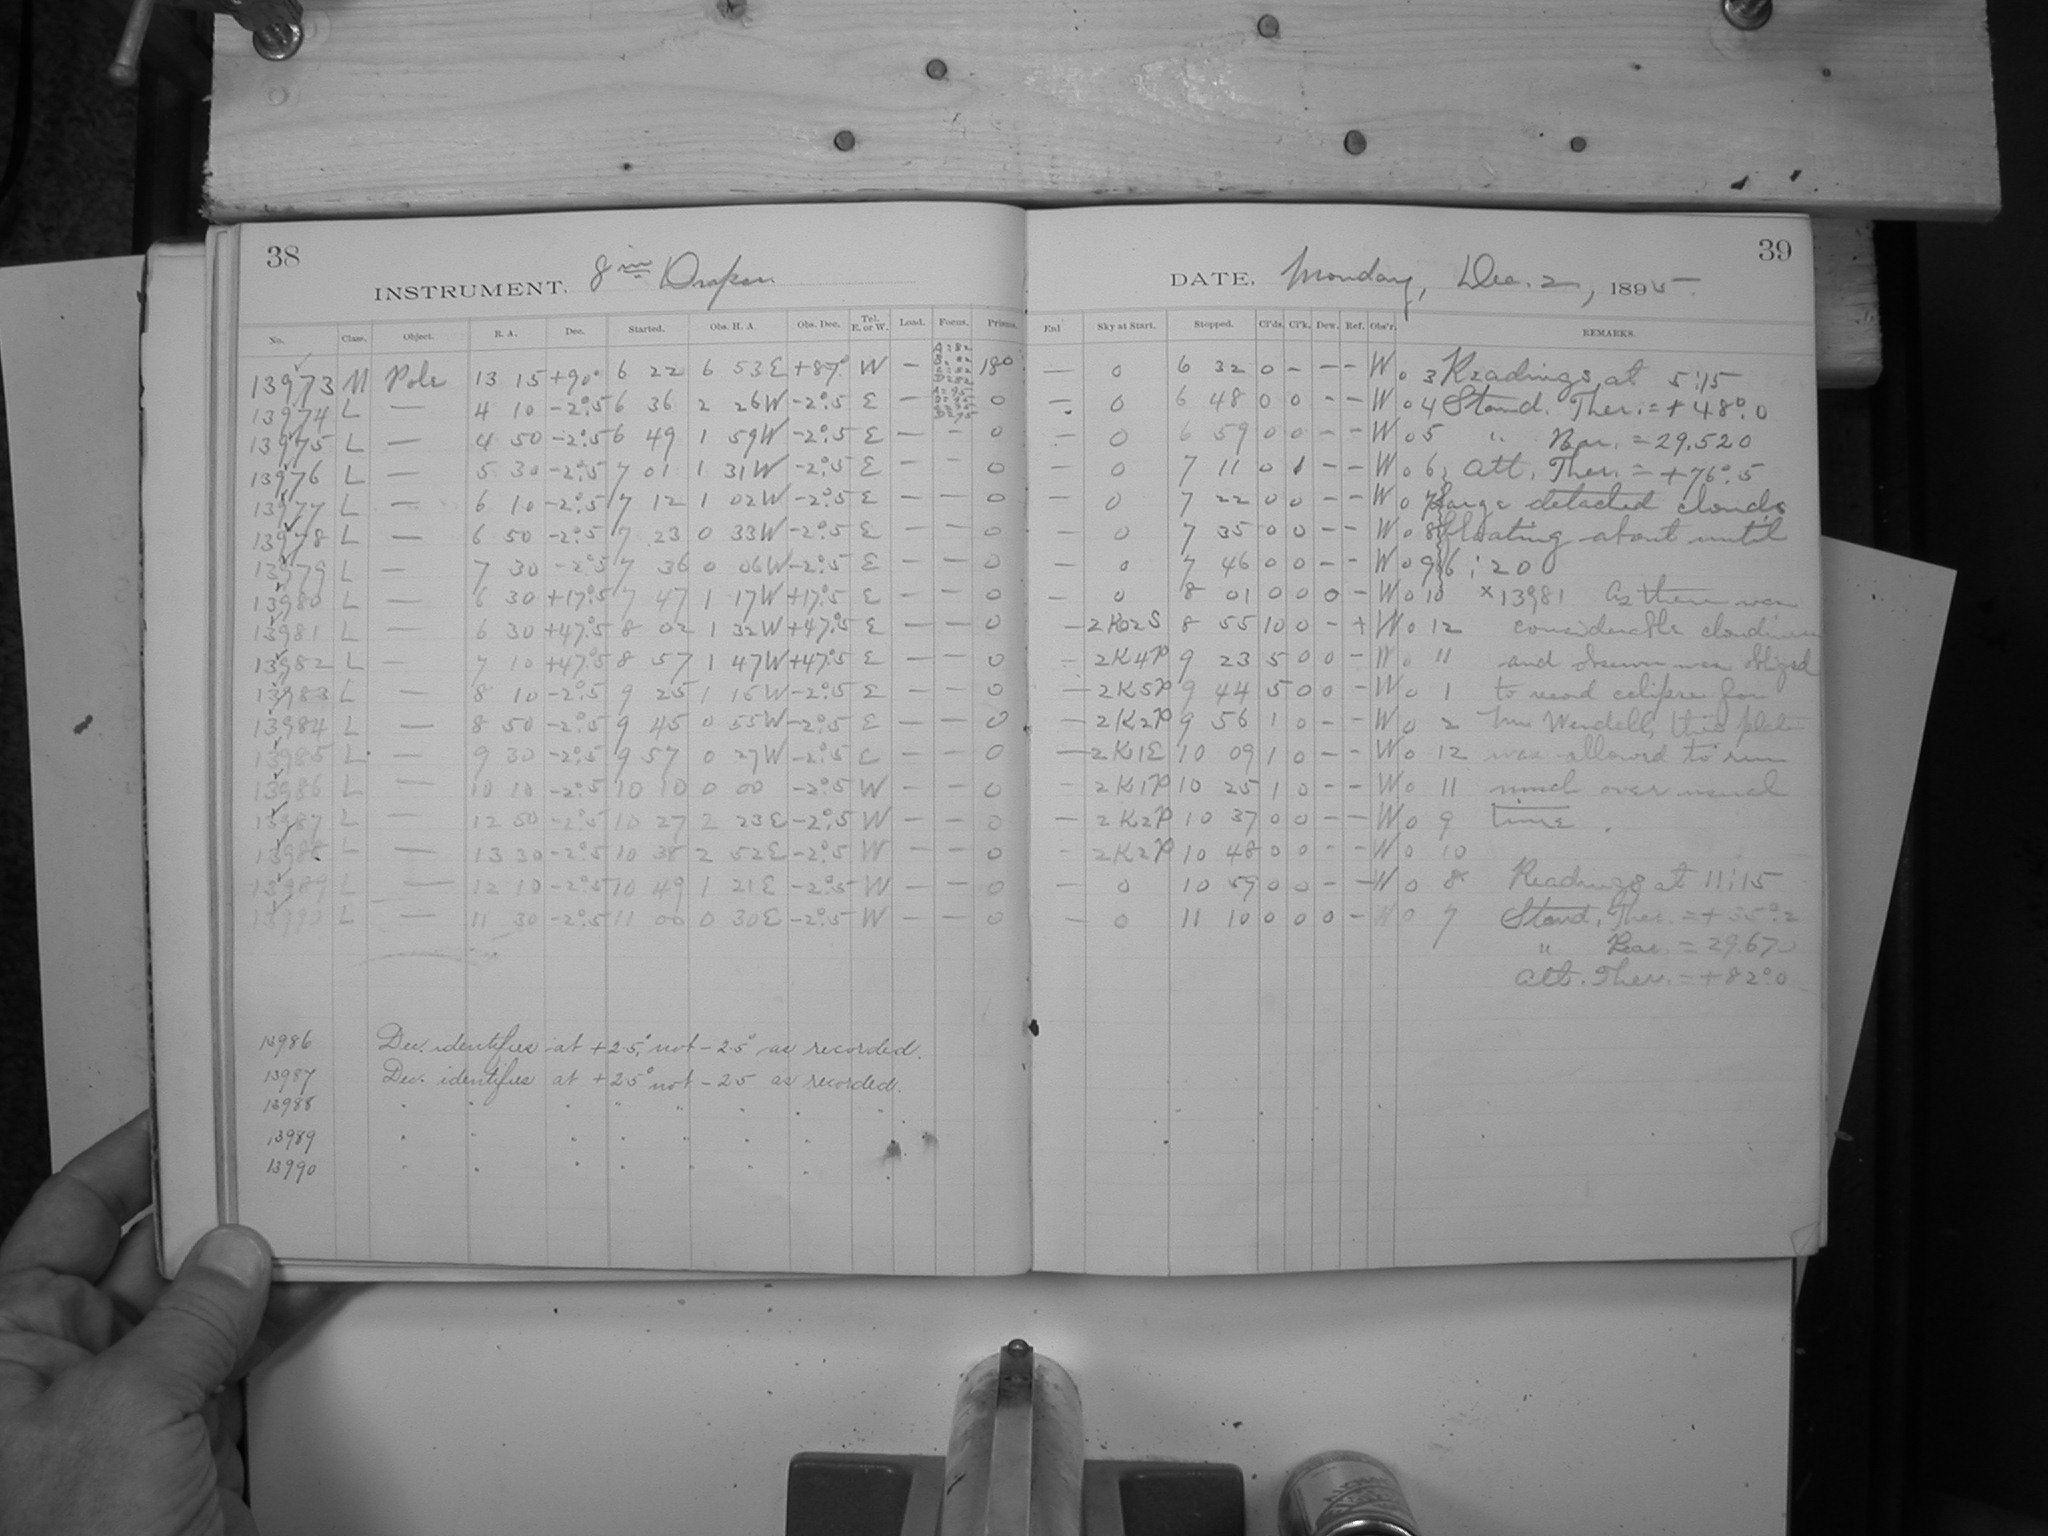 38
INSTRUMENT. 8 in Draper.
No. Class. Object. R. A. Dec. Started. Obs. H. A. Obs. Dec. Tel. E. or W. Load. Focus. Prisms.
13973 M Pole 13 15 +90° 6 22 6 53E +87° W — 180
13974 L — 4 10 -2°.5 6 36 2 26W -2°.5 E — 0
13975 L — 4 50 -2°.5 6 49 1 59W -2°.5 E — — 0
13976 L — 5 30 -2°.5 7 01 1 31W -2°.5 E — — 0
13977 L — 6 10 -2°.5 7 12 1 02W -2°.5 E — — 0
13978 L — 6 50 -2°.5 7 23 0 33W -2°.5 E — — 0
13979 L — 7 30 -2°.5 7 36 0 06W -2°.5 E — — 0
13980 L — 6 30 +17°.5 7 47 1 17W +17°.5 E — — 0
13981 L — 6 30 +47°.5 8 02 1 32W +47°.5 E — — 0
13982 L — 7 10 +47°.5 8 57 1 47W +47°.5 E — — 0
13983 L — 8 10 -2°.5 9 25 1 15W -2°.5 E — — 0
13984 L — 8 50 -2°.5 9 45 0 55W -2°.5 E — — 0
13985 L — 9 30 -2°.5 9 57 0 27W -2°.5 E — — 0
13986 L — 10 10 -2°.5 10 10 0 00 -2°.5 W — — 0
13987 L — 12 50 -2°.5 10 27 2 23E -2°.5 W — — 0
13988 L — 13 30 -2°.5 10 38 2 52E -2°.5 W — — 0
13989 L — 12 10 -2°.5 10 49 1 21E -2°.5 W — — 0
13990 L — 11 30 -2°.5 11 00 0 30E -2°.5 W — — 0
13986 Dec. identifies at +2.5° not -2.5° as recorded.
13987 Dec. identifies at +2.5° not -2.5 as recorded.
13988 " " " " " " " "
13989 " " " " " " "
13990 " " " " " " "
39
DATE. Monday, Dec. 2, 1895
Exl Sky at Start. Stopped. Cl'ds. Cl'k. Dew. Ref. Obs'r. REMARKS.
— 0 6 32 0 - - - W 0 3 Readings at 5:15
— 0 6 48 0 0 - - W 0 4 Stand. Ther. = +48°.0
— 0 6 59 0 0 - - W 0 5 " Bar. = 29.520
— 0 7 11 0 1 - - W 0 6 Att. Ther. = +76°.5
— 0 7 22 0 0 - - W 0 7 Large detached clouds
— 0 7 35 0 0 - - W 0 8 floating about until
— 0 7 46 0 0 - - W 0 9 6:20
— 0 8 01 0 0 0 - W 0 10 x13981 As there was
— 2K02S 8 55 10 0 - + W 0 12 considerable cloudiness
— 2K4P 9 23 5 0 0 - W 0 11 and observer was obliged
— 2K5P 9 44 5 0 0 - W 0 1 to record eclipse for
— 2K2P 9 56 1 0 - - W 0 2 Mr. Wendell, this plate
— 2K1E 10 09 1 0 - - W 0 12 was allowed to run
— 2K1P 10 25 1 0 - - W 0 11 much over usual
— 2K2P 10 37 0 0 - - W 0 9 time.
2K2P 10 48 0 0 - - W 0 10
— 0 10 59 0 0 - - W 0 8 Readings at 11:15
— 0 11 10 0 0 0 - W 0 7 Stand. Ther. = +35°.2
" Bar. = 29.670
Att. Ther. = +82°.0